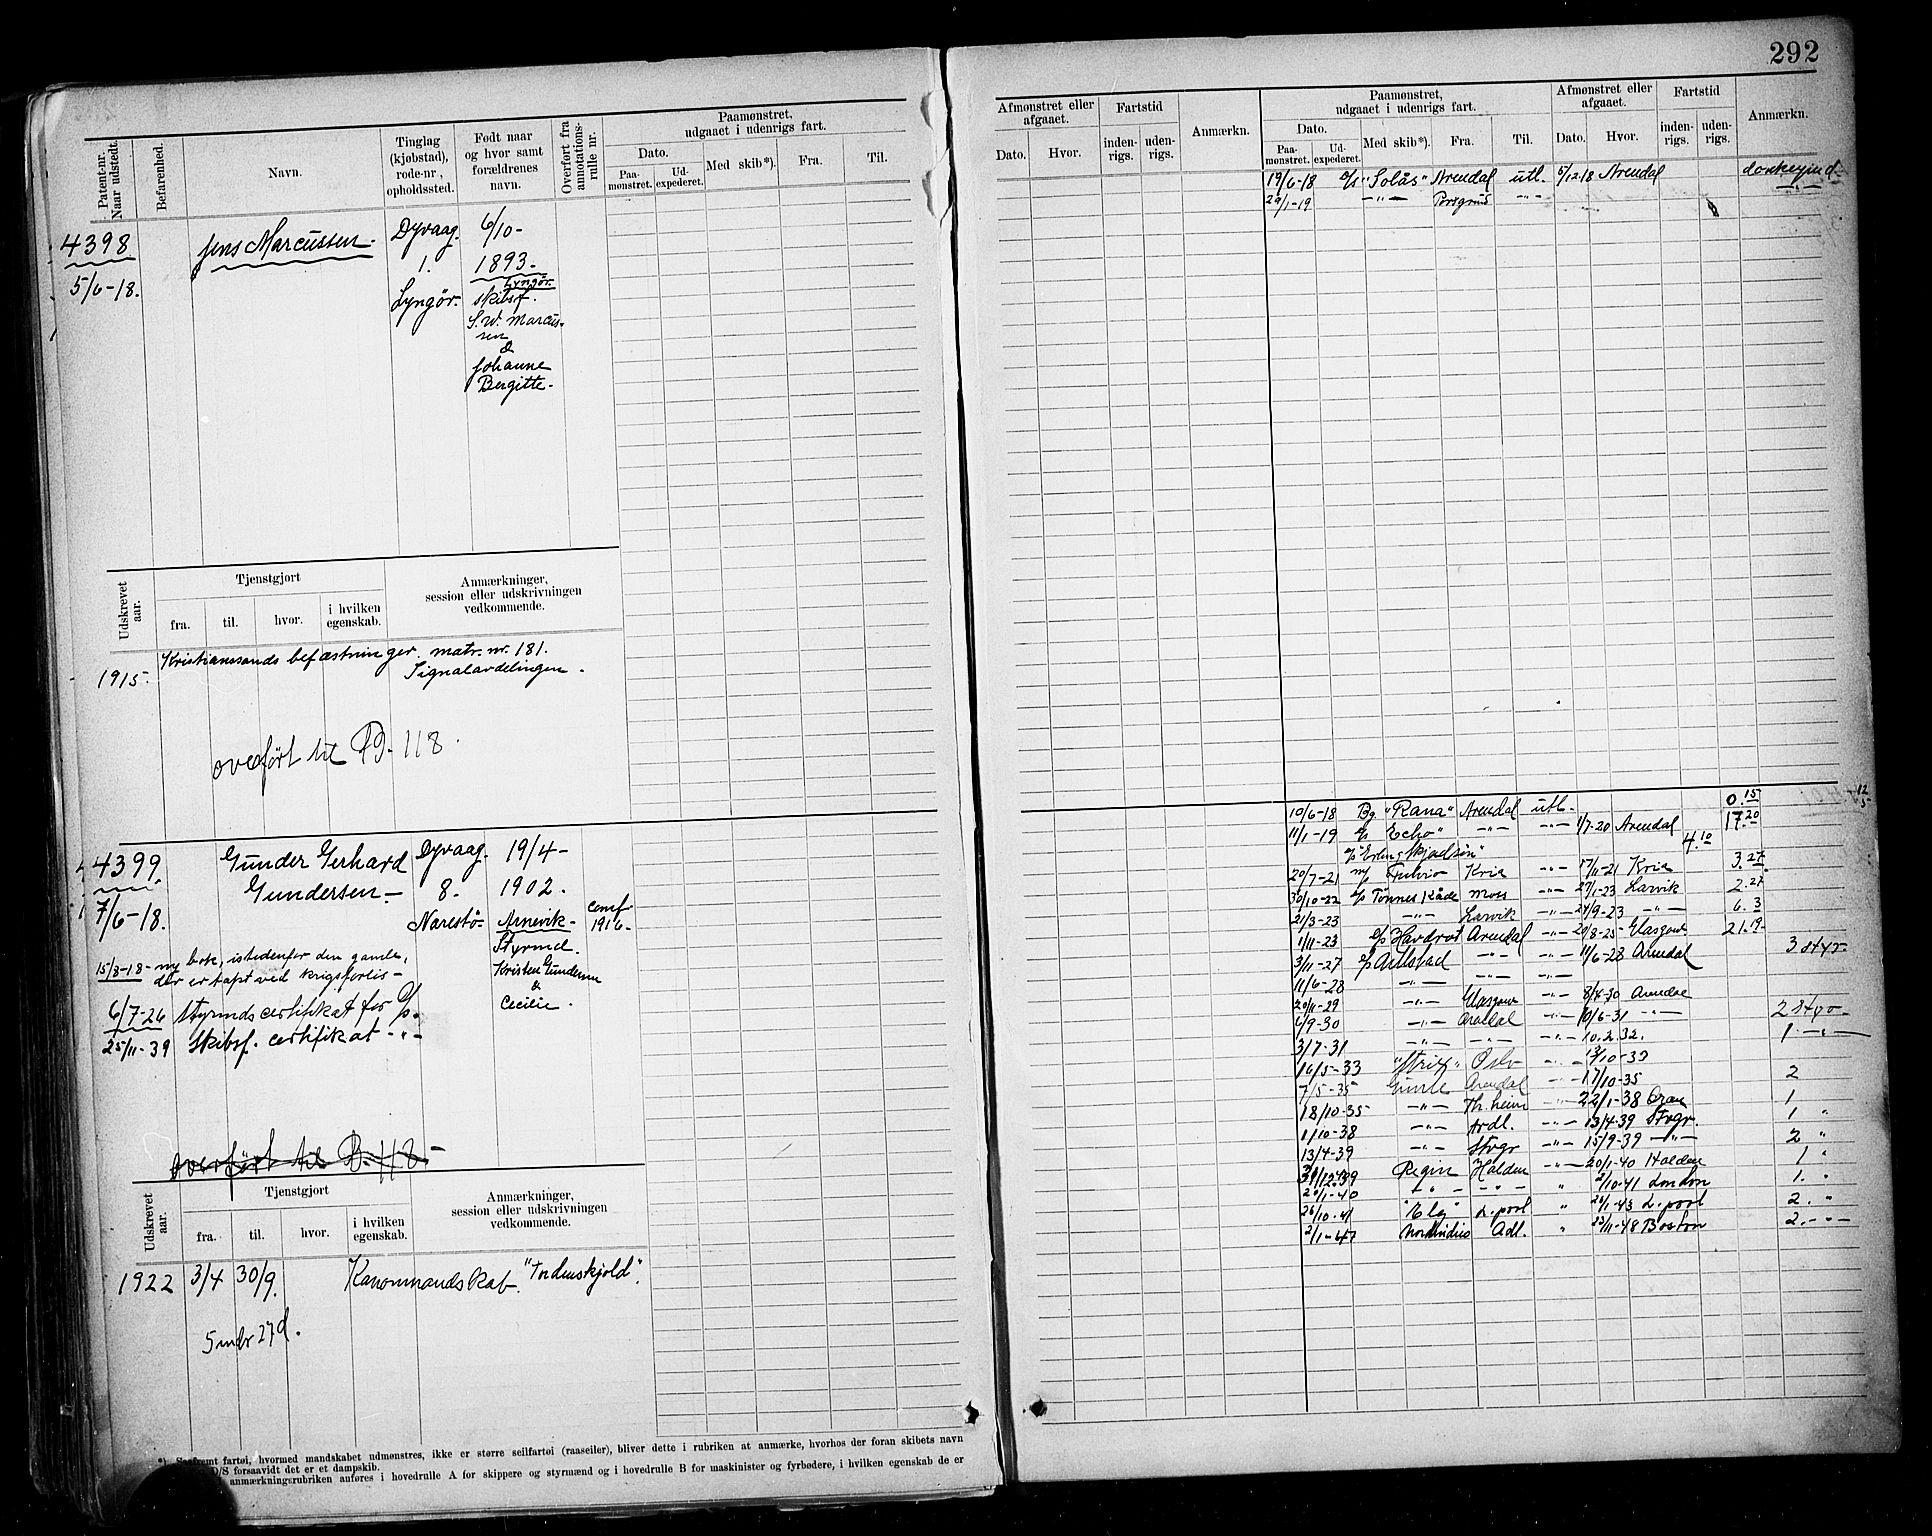 292
Patent-nr. Naar udstedt.
Befarenhed.
Navn.
Tinglag (kjøbstad), rode-nr., opholdssted.
Født naar og hvor samt forældrenes navn.
Overført fra annotations-rulle nr.
Paamønstret, udgaaet i udenrigs fart.
Dato.
Paa-mønstret.
Ud-expederet.
Med skib*).
Fra.
Til.
4398
5/6-18.
Jens Marcussen.
Dyvaag.
1.
Lyngör.
6/10-
1893.
Lyngör.
skibsf.
S. W. Marcus-
sen
&
Johanne
Bergitte.
Udskrevet aar.
Tjenstgjort
fra.
til.
hvor.
i hvilken egenskab.
Anmærkninger, session eller udskrivningen vedkommende.
1915.
Kristianssands befæstninger. matr. nr. 181.
Signalavdelingen.
overført til 118.
4399
7/6-18.
Gunder Gerhard
Gundersen
Dyvaag.
8.
Narestö
19/4-
1902.
Arnevik-
Styrmd.
Kristen Gundersen
&
Cecilie.
1916.
15/8-18- ny bok, istedenfor den gamle,
der er tapt ved krigsforlis-
6/7-26 Styrmds certifikat for
25/11-39 Skibsf. certifikat -"-
overført til B. 118.
Udskrevet aar.
Tjenstgjort
fra.
til.
hvor.
i hvilken egenskab.
Anmærkninger, session eller udskrivningen vedkommende.
1922 3/4 30/9. "Tordenskjold".
5 mdr 27 d.
fartøi, hvormed mandskabet udmønstres, ikke er større seilfartøi (raaseiler), bliver dette i rubriken at anmærke, hvorhos der foran skibets navn
D/S forsaavidt det er et dampskib.
anmærkningsrubriken anføres i hovedrulle A for skippere og styrmænd og i hovedrulle B for maskinister og fyrbødere, i hvilken egenskab de er
Afmønstret eller afgaaet.
Dato.
Hvor.
Fartstid
inden-rigs.
uden-rigs.
Anmærkn.
Paamønstret, udgaaet i udenrigs fart.
Dato.
Paa-mønstret.
Ud-expederet.
Med skib*).
Fra.
Til.
Afmønstret eller afgaaet.
Dato.
Hvor.
Fartstid
inden-rigs.
uden-rigs.
Anmærkn.
19/6-18 "Solås" Arendal utl. 5/12-18 Arendal
29/1-19 -"- Porsgrund -"-
10/6-18 Bg "Rana" Arendal utl. 0.15
11/1-19 "Echo" -"- -"- 1/7-20 Arendal 17.20
4.10
20/7-21 Fulvio Kria -"- 17/11-21 Kria 3.27
30/10-22 Tönnes Moss -"- 27/1-23 Larvik 2.27
21/3-23 -"- Larvik -"- 24/9-23 -"- 6.3
1/11-23 Havdrot Arendal -"- 20/8-25 Glasgow 21.19
3/11-27 -"- -"- 11/6-28 Arendal 3 styr.
11/6-28 -"- -"- -"-
20/11-29 -"- Glasgow -"- 8/4-30 Arendal
6/9-30 -"- Arendal -"- 10/6-31 -"-
3/7-31 -"- -"- -"- 10.2.32. 1 -"-
16/5-33 "Strix" Oslo -"- 13/10-33
7/5-35 Arendal -"- 17/10-35 2
18/10-35 -"- Th.heim -"- 22/1-38 Oran 1
1/10-38 -"- Ardl. -"- 13/4-39 Stvgr. 1 "
13/4-39 -"- Stvgr -"- 15/9-39 -"- 2 "
Regin Halden -"- 20/1-40 Halden 1 "
20/1-40 -"- -"- " 2/10-41 London 1. "
26/10-41 "Elg" L.pool " 26/1-43 L.pool 2. "
2/1-47 Adl. " 22/11-48 Boston 2. -"-